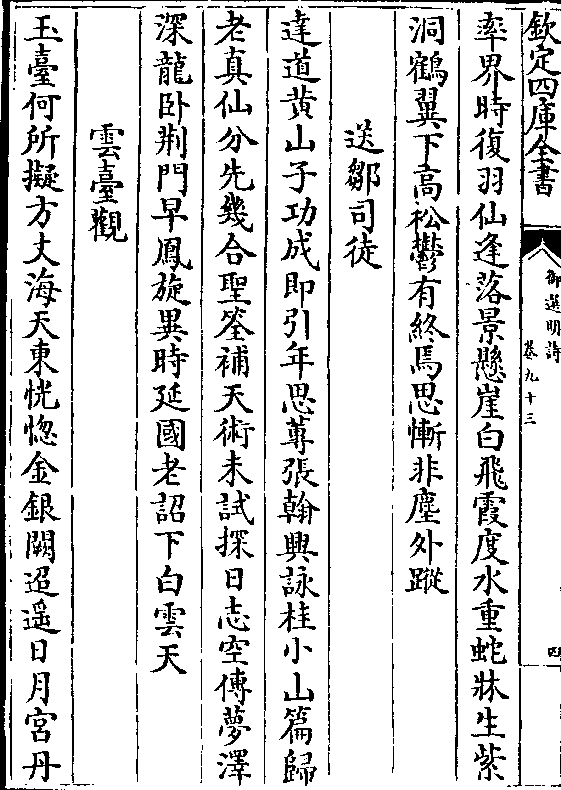 欽定四庫全書
御選明詩
卷九十三
四
率界時復羽仙逢落景懸崖白飛霞度水重蛇牀生紫
洞鶴翼下高松鬱有終焉思慚非塵外蹤
送鄒司徒
達道黄山子功成即引年思蓴張翰興詠桂小山篇歸
老真仙分先幾合聖筌補天術未試探日志空傳夢澤
深龍卧荆門早鳳旋異時延國老詔下白雲天
雲臺觀
玉臺何所擬方丈海天東恍惚金銀闕迢遥日月宮丹